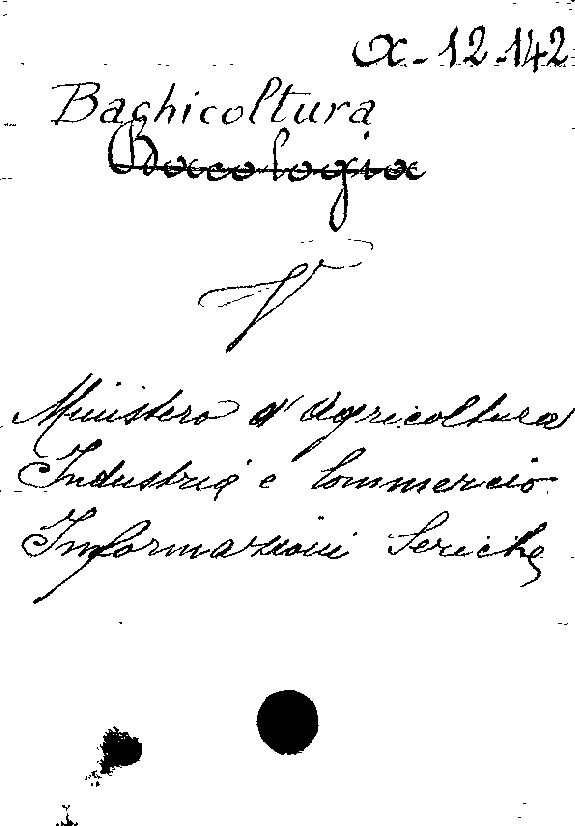 a-12-142
Bachicoltura
Bacologia
V
Ministero d'Agricoltura
Industria e Commercio
Informazioni Seriche